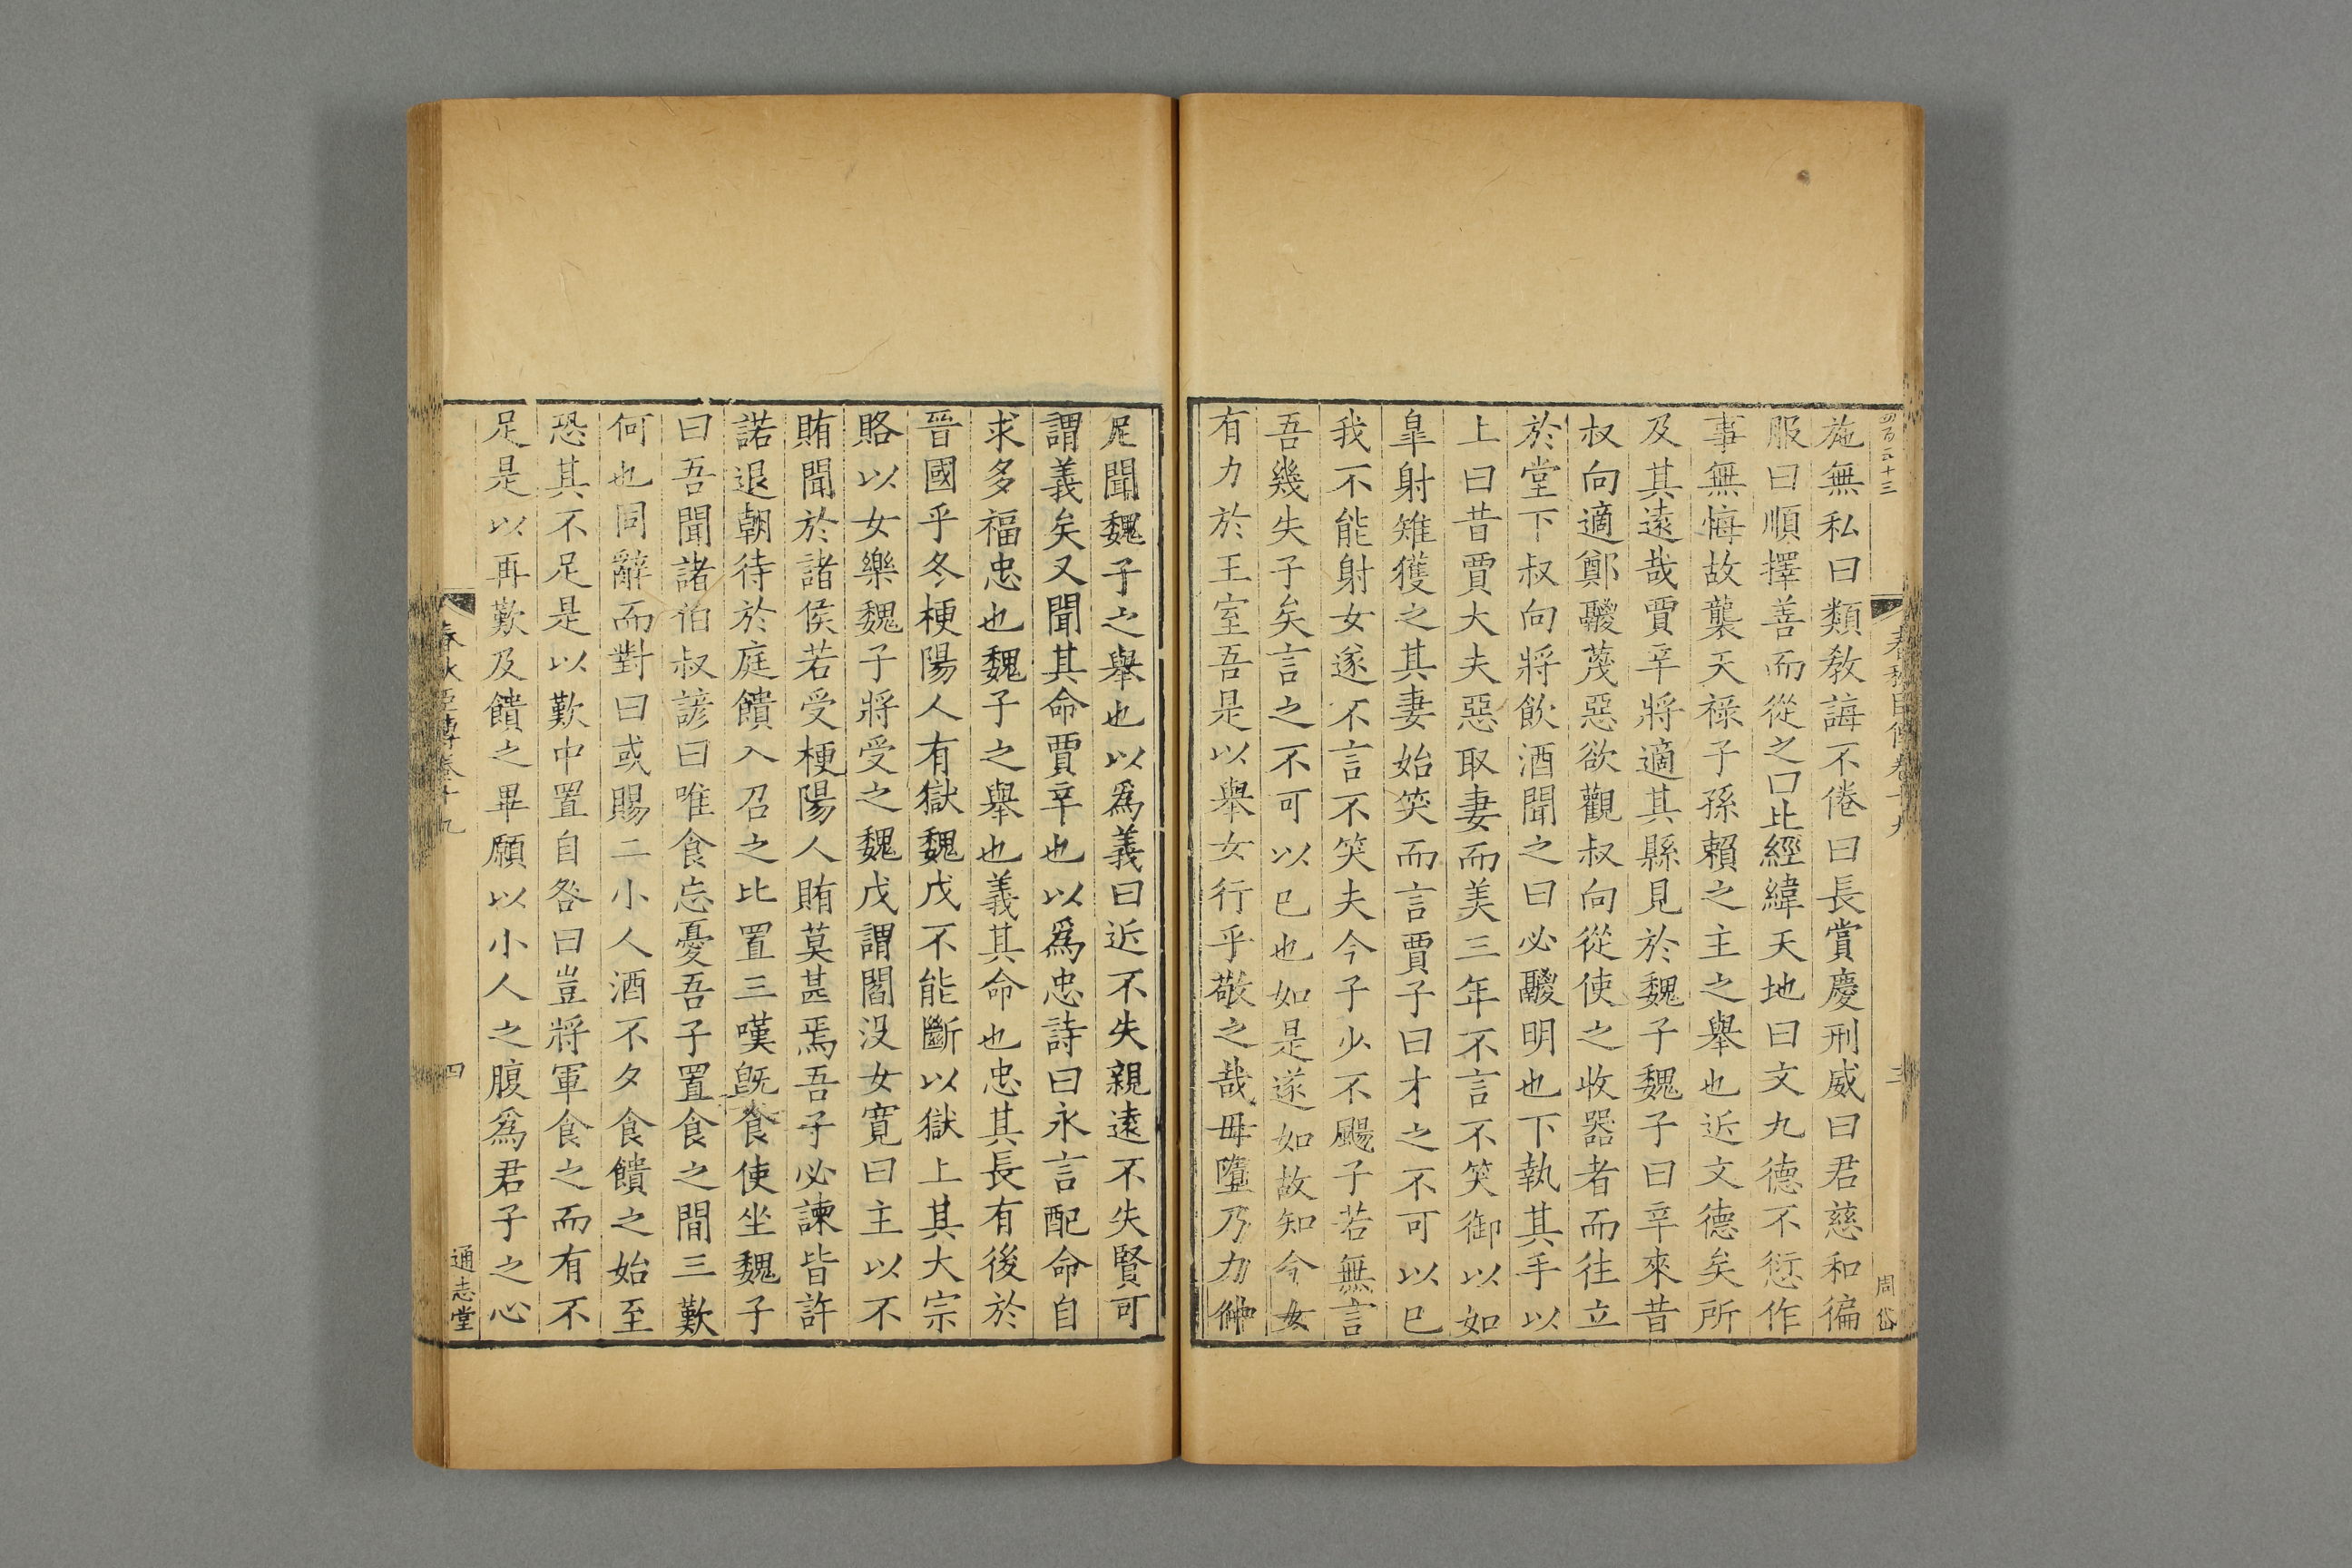 施無私曰類教誨不倦曰長賞慶刑威曰君慈和徧
服曰順擇善而從之曰比經緯天地曰文九德不愆作
事無悔故襲天祿子孫賴之主之舉也近文德矣所
及其遠哉賈辛將適其縣見於魏子魏子曰辛來昔
叔向適鄭鬷蔑惡欲觀叔向從使之收器者而往立
於堂下叔向將飲酒聞之曰必鬷明也下執其手以
上曰昔賈大夫惡取妻而美三年不言不笑御以如
皐射雉獲之其妻始笑而言賈子曰才之不可以已
我不能射女遂不言不笑夫今子少不颺子若無言
吾幾失子矣言之不可以已也如是遂如故知今女
有力於王室吾是以舉女行乎敬之哉毋墮乃力仲
尼聞魏子之舉也以爲義曰近不失親遠不失賢可
謂義矣又聞其命賈辛也以爲忠詩曰永言配命自
求多福忠也魏子之舉也義其命也忠其長有後於
晉國乎冬梗陽人有獄魏戊不能斷以獄上其大宗
賂以女樂魏子將受之魏戊謂閻沒女寬曰主以不
賄聞於諸侯若受梗陽人賄莫甚焉吾子必諫皆許
諾退朝待於庭饋入召之比置三嘆旣食使坐魏子
曰吾聞諸伯叔諺曰唯食忘憂吾子置食之間三歎
何也同辭而對曰或賜二小人酒不夕食饋之始至
恐其不足是以歎中置自咎曰豈將軍食之而有不
足是以再歎及饋之畢願以小人之腹爲君子之心
四
通志堂